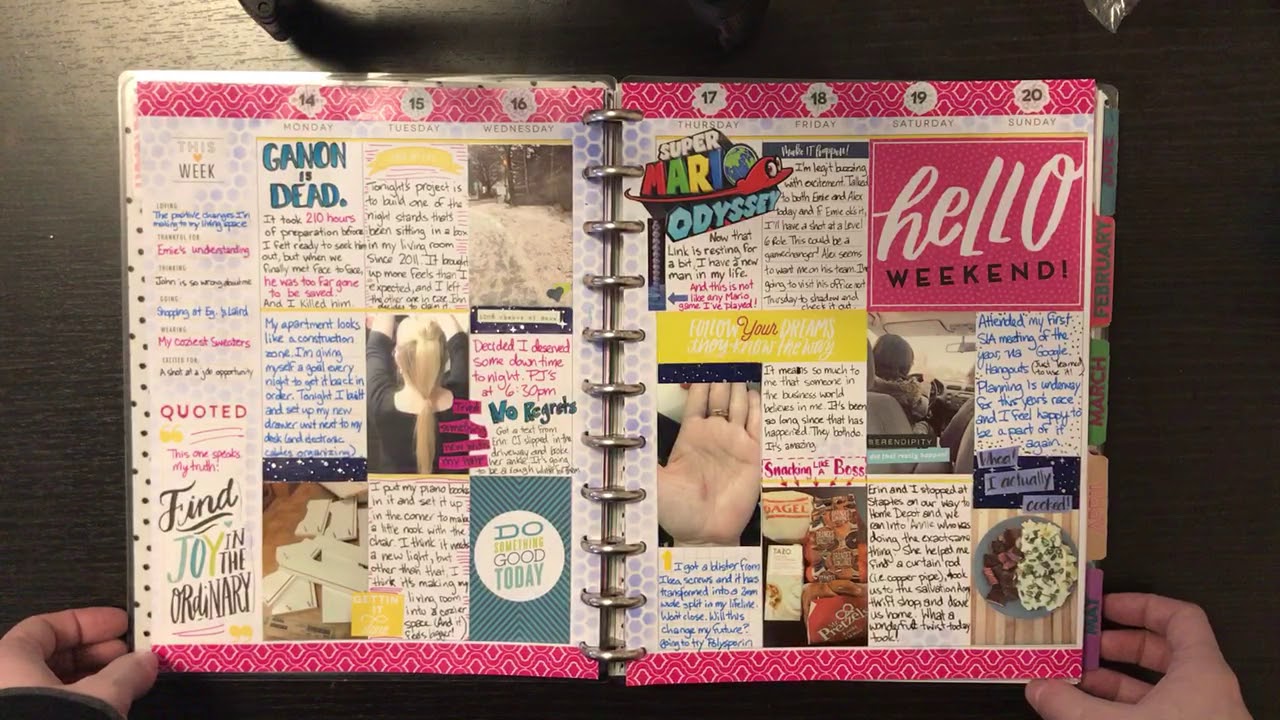 14
MONDAY
15
TUESDAY
16
WEDNESDAY
THIS
WEEK
LOVING:
The positive changes I'm
making to my living space
THANKFUL FOR:
Ernie's understanding
THINKING:
John is so wrong about me
GOING:
Shopping at Eg. & Laird
WEARING:
My coziest sweaters
EXCITED FOR:
A shot at a job opportunity
QUOTED
This one speaks
my truth!
Find
JOY IN
THE
ORdiNARY
GANON
IS
DEAD.
It took 210 hours
of preparation before
I felt ready to seek him
out, but when we
finally met face to face,
he was too far gone
to be saved.
And I killed him.
My apartment looks
like a construction
zone. I'm giving
myself a goal every
night to get it back in
order. Tonight I built
and set up my new
drawer unit next to my
desk (and electronic
cables organizing)
Tonight's project is
to build one of the
night stands that's
been sitting in a box
in my living room
since 2011. It brought
up more feels than I
expected, and I left
the other one in case John
decides to claim it.
Tried
something
new with
my hair
I put my piano books
in it and set it up
in the corner to make
a little nook with the
chair. I think it needs
a new light, but
other than that I
think it's making my
living room
into a cozier
space (And it
feels bigger!
GETTIN'
IT
Done
100% chance of snow
Decided I deserved
some down time
to night. PJ's
at 6:30pm
No Regrets
Got a text from
Erin: CJ slipped in the
driveway and broke
her ankle. It's going
to be a rough winter for them
DO
SOMETHING
GOOD
TODAY
17
THURSDAY
18
FRIDAY
19
SATURDAY
20
SUNDAY
SUPER
MARIO
ODYSSEY
Now that
Link is resting for
a bit, I have a new
man in my life.
And this is not
like any Mario
game I've played!
Make it happen!
I'm legit buzzing
with excitement. Talked
to both Ernie and Alex
today and if Ernie oks it,
I'll have a shot at a Level
6 Role. This could be a
gamechanger! Alex seems
to want me on his team. I'm
going to visit his office next
Thursday to shadow and
check it out.
hello
WEEKEND!
FOLLOW Your DREAMS
they know THE WAY
It means so much to
me that someone in
the business world
believes in me. It's been
so long since that has
happened. They both do.
It's amazing.
Snacking LIKE A Boss
BAGEL
TAZO
Pretzels
I got a blister from
Ikea screws and it has
transformed into a 2mm
wide split in my lifeline.
Won't close. Will this
change my future?
Going to try Polysporin
SERENDIPITY
did that really happen?
Erin and I stopped at
Staples on our way to
Home Depot and we
ran into Annie who was
doing the exact same
thing. She helped me
find a curtain rod
(i.e. copper pipe), took
us to the Salvation Army
thrift shop and drove
us home. What a
wonderful twist today
took!
Attended my first
SIA meeting of the
year, via Google
Hangouts (Just learned
to use it!)
Planning is underway
for this year's race
and I feel happy to
be a part of it
again.
Whee!
I actually
cooked!
FEBRUARY
MARCH
MAY